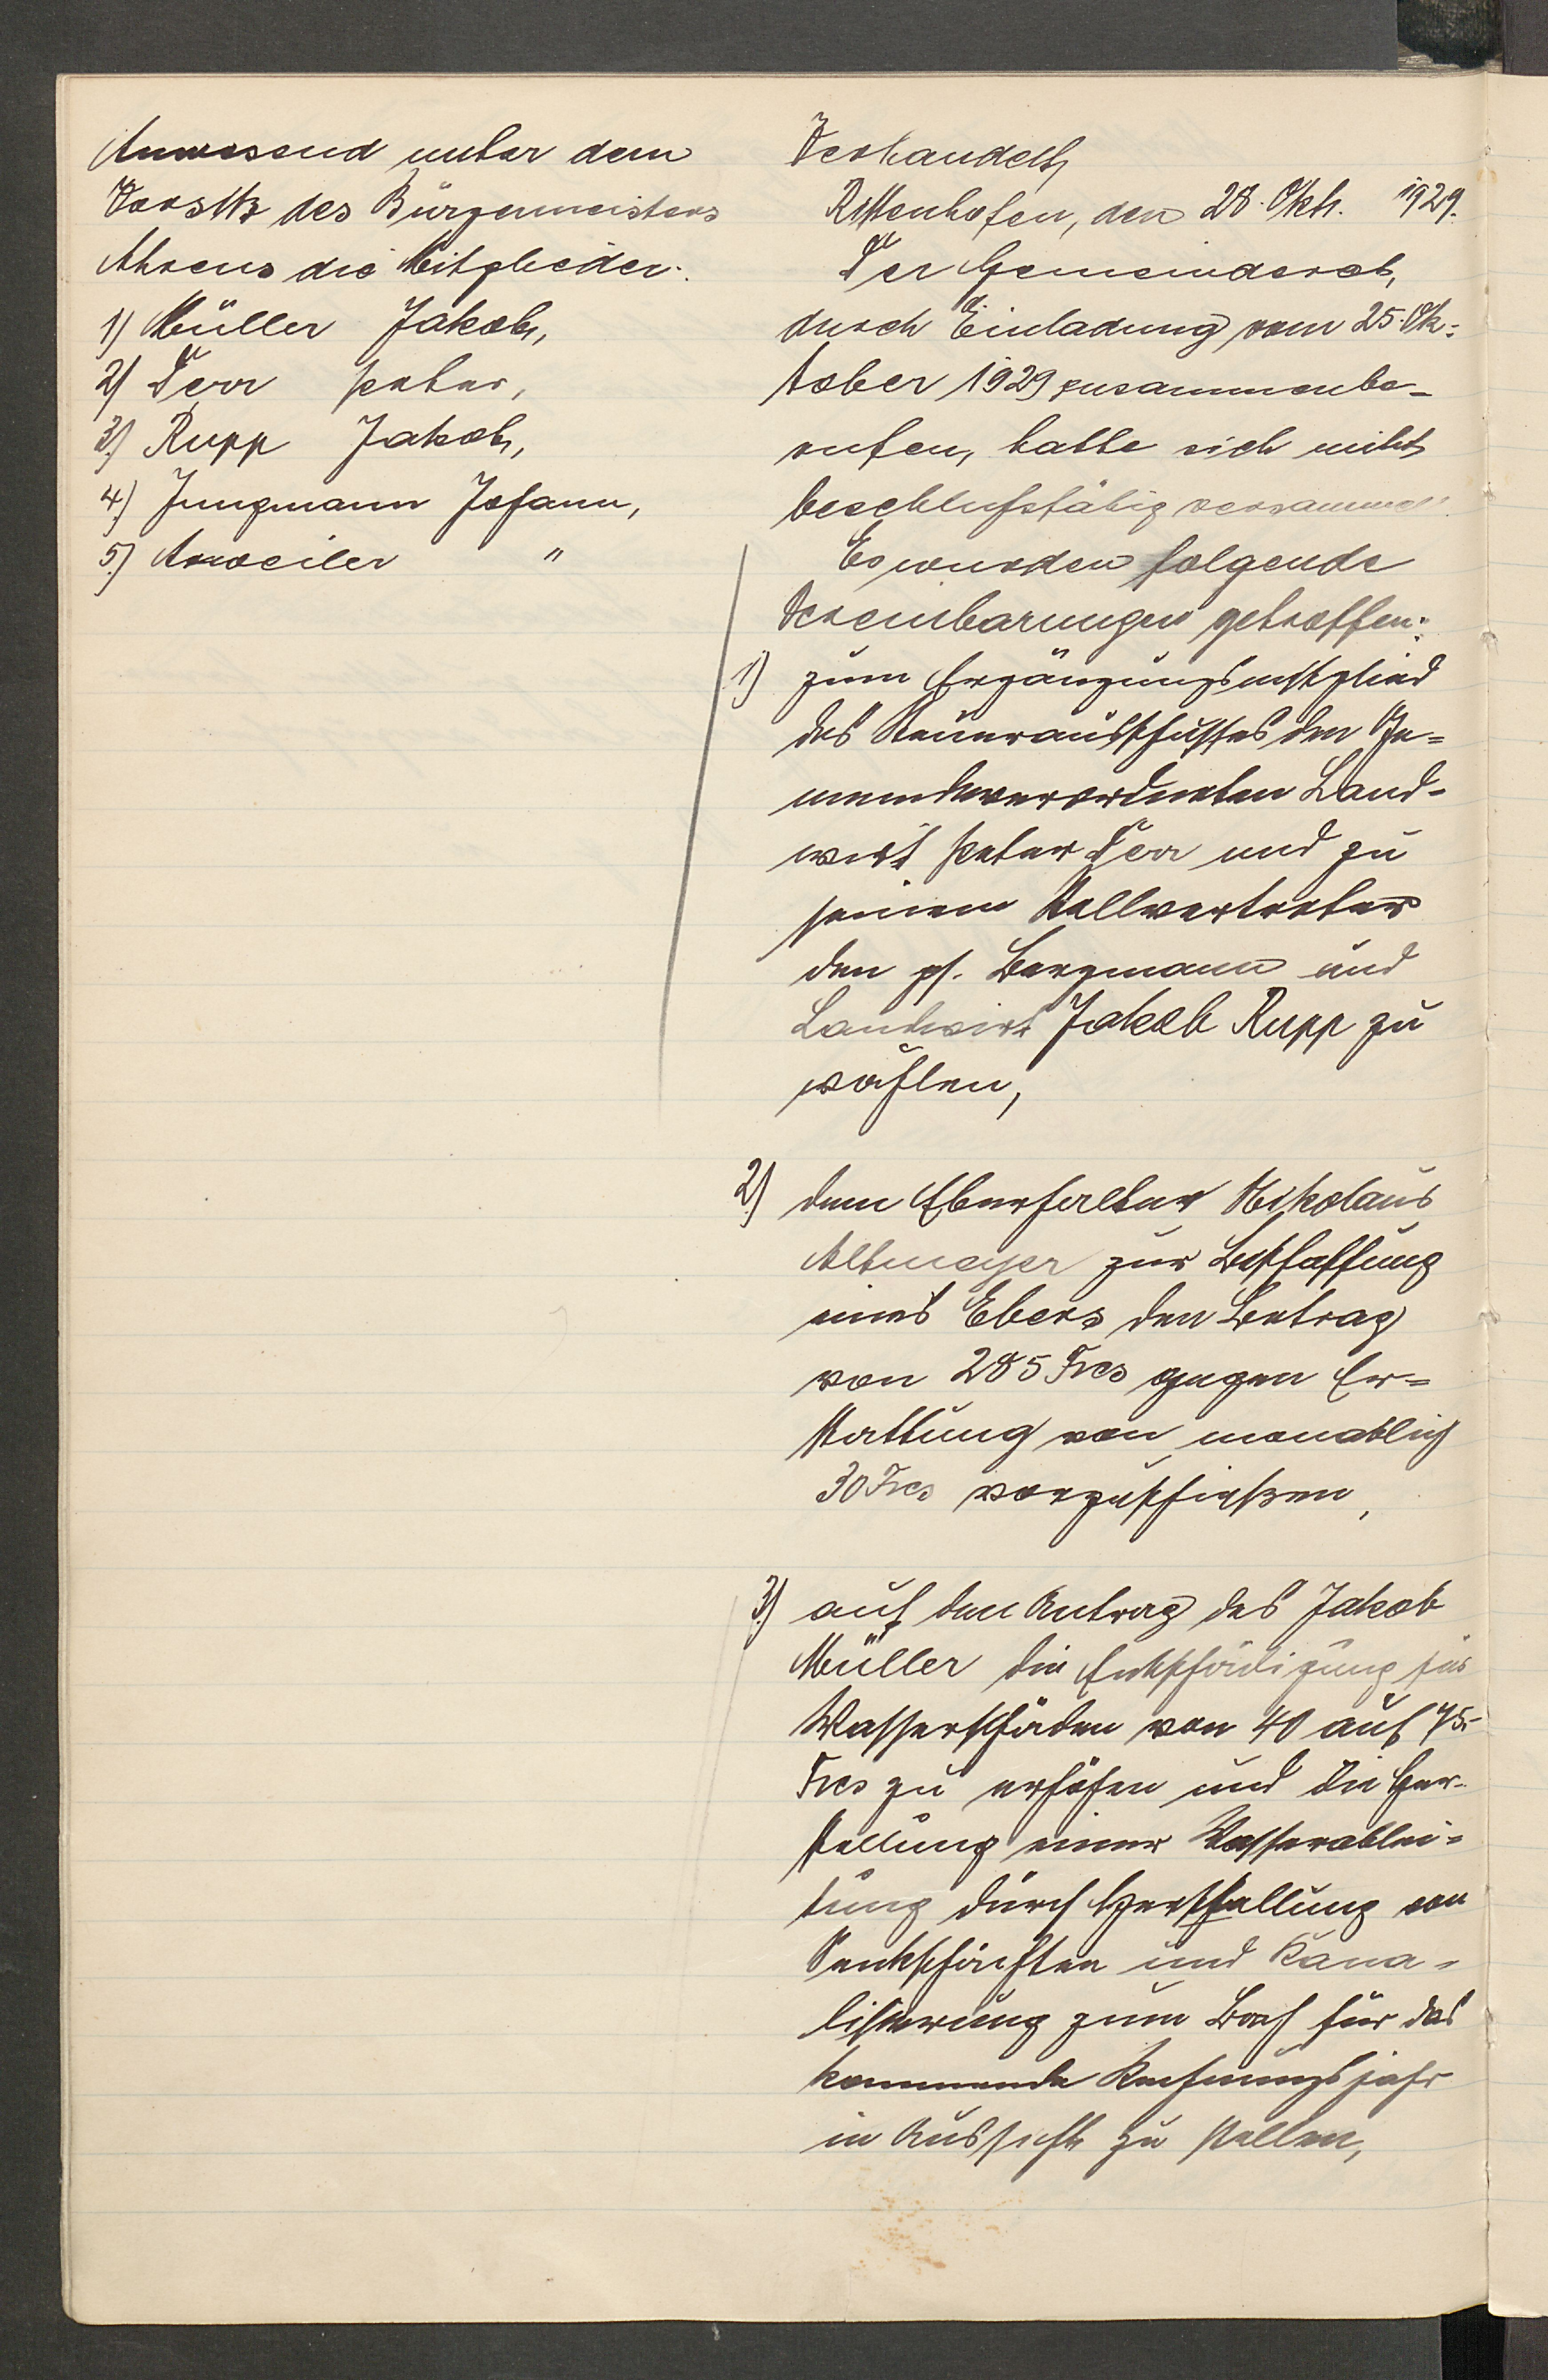 Anwesend unter dem
Vorsitz des Bürgermeisters
Ahrens die Mitglieder:
1) Müller Jakob,
2) Derr Peter,
3.) Rupp Jakob,
4.) Jungmann Johann,
5.) Arweiler "
Verhandelt,
Rittenhofen, den 28. Okt. 1929.
Der Gemeinderat,
durch Einladung vom 25. Ok=
tober 1929 zusammenbe-
rufen, hatte sich nicht
beschlußfähig versammelt.
Es wurden folgende
Vereinbarungen getroffen:
1) zum Ergänzungsmitglied
des Steuerausschusses den Ge=
meindeverordneten Land-
wirt Peter Derr und zu
seinem Stellvertreter
den ps. Bergmann und
Landwirt Jakob Rupp zu
wählen,
2.) dem Eberhalter Nikolaus
Altmeyer zur Beschaffung
eines Ebers den Betrag
von 285 Frcs gegen Er=
stattung von monatlich
30 Frcs vorzuschießen,
3.) auf den Antrag des Jakob
Müller die Entschädigung für
Wasserschäden von 40 auf 75.-
Frcs zu erhöhen und die Her-
stellung einer Wasserablei=
tung durch Herstellung von
Senkschächten und Kana=
lisierung zum Bach für das
kommende Rechnungsjahr
in Aussicht zu stellen,